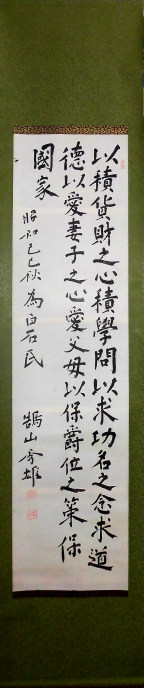 以積貨財之心積學問以求功名之念求道
德以愛妻子之心愛父母以保爵位之策保
國家
昭和己巳秋為白石氏
鵠山秀雄